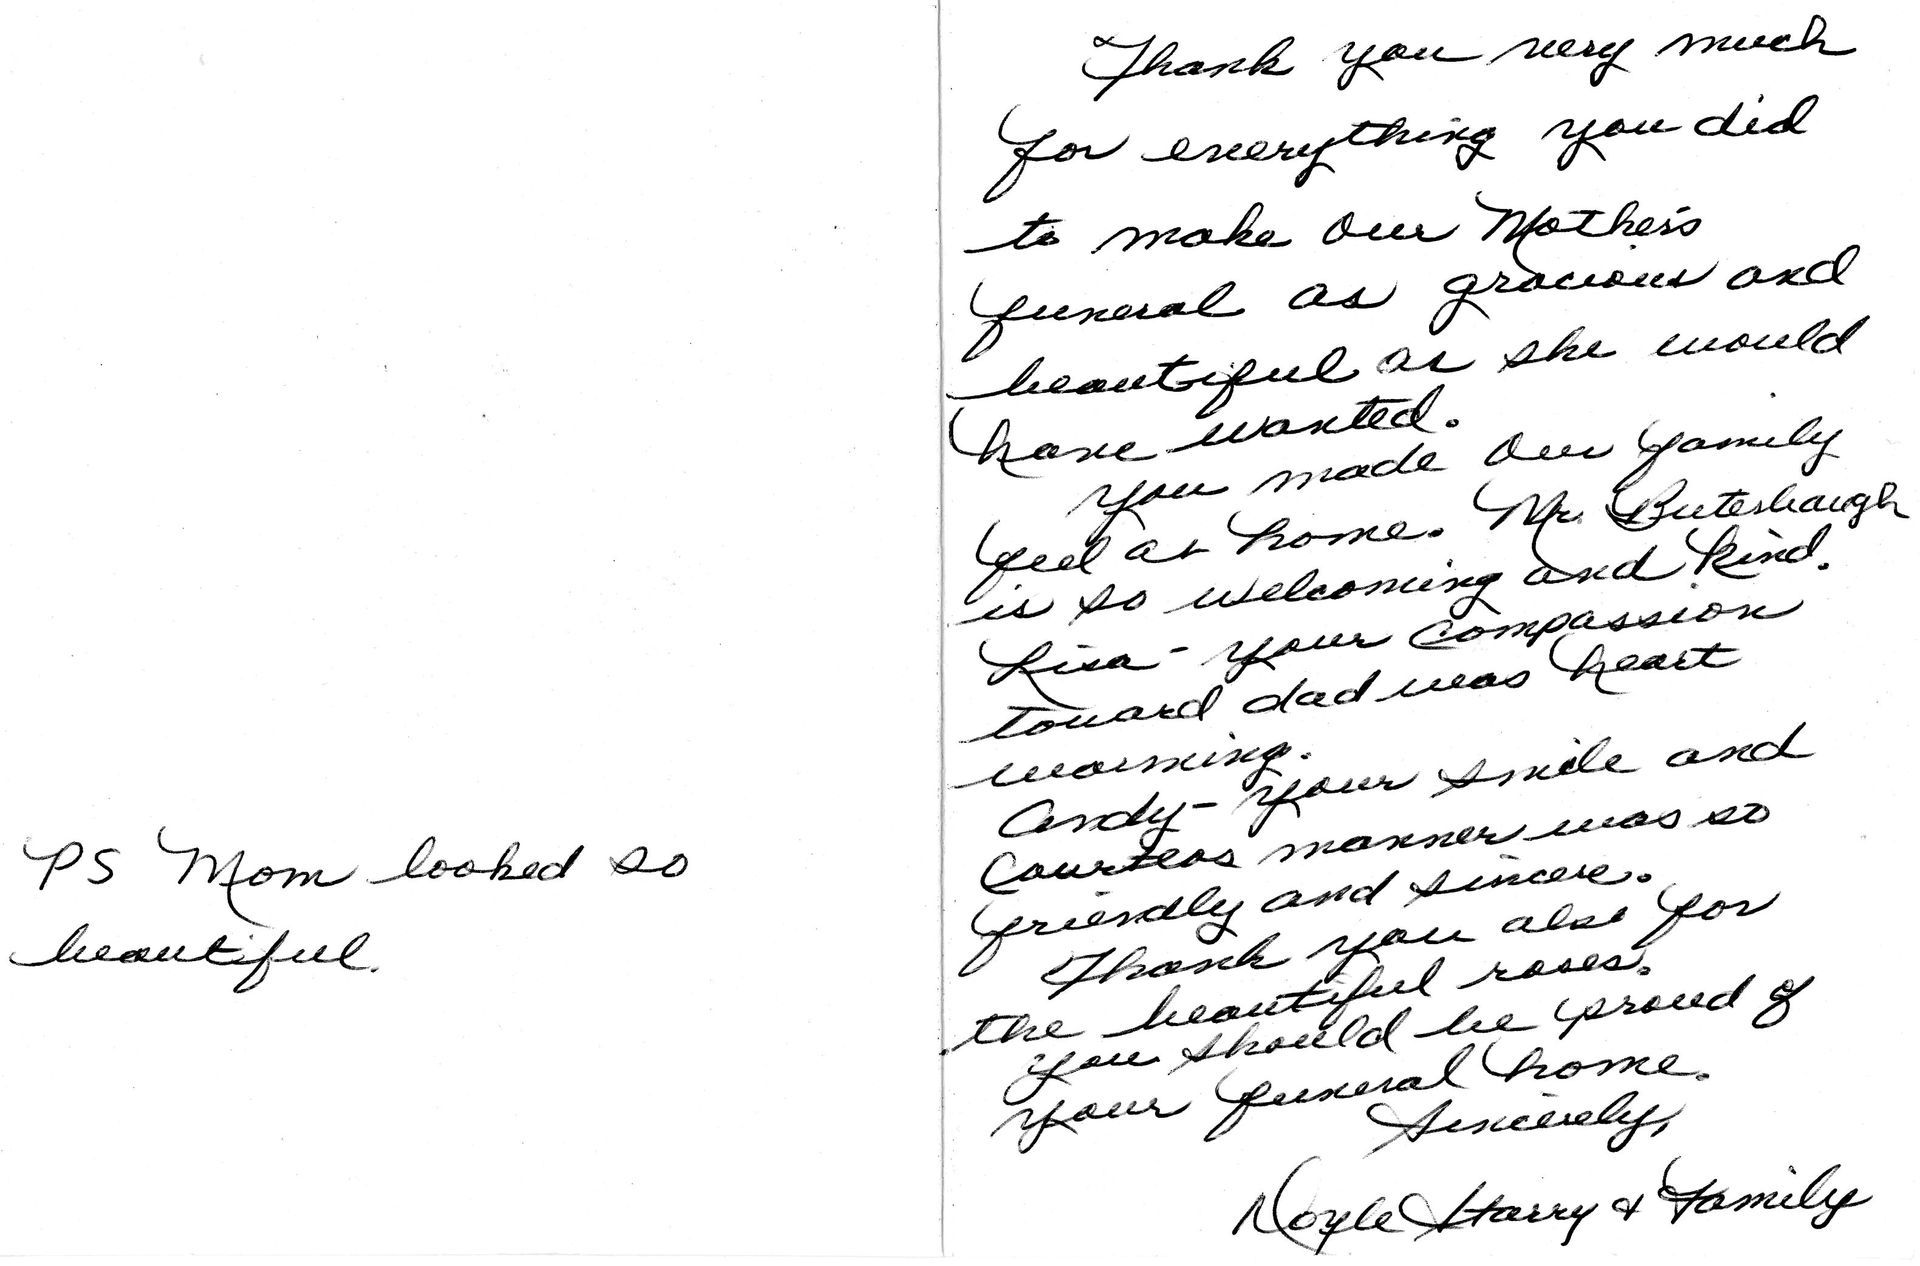 Thank you very much
for everything you did
to make our Mother's
funeral as gracious and
beautiful as she would
have wanted.
You made our family
feel at home. Mr. Buterbaugh
is so welcoming and kind.
Lisa - your compassion
toward dad was heart
warming.
Andy - your smile and
courteos manner was so
friendly and sincere.
Thank you also for
the beautiful roses.
You should be proud of
your funeral home.
Sincerely,
Harry & Family
PS Mom looked so
beautiful.